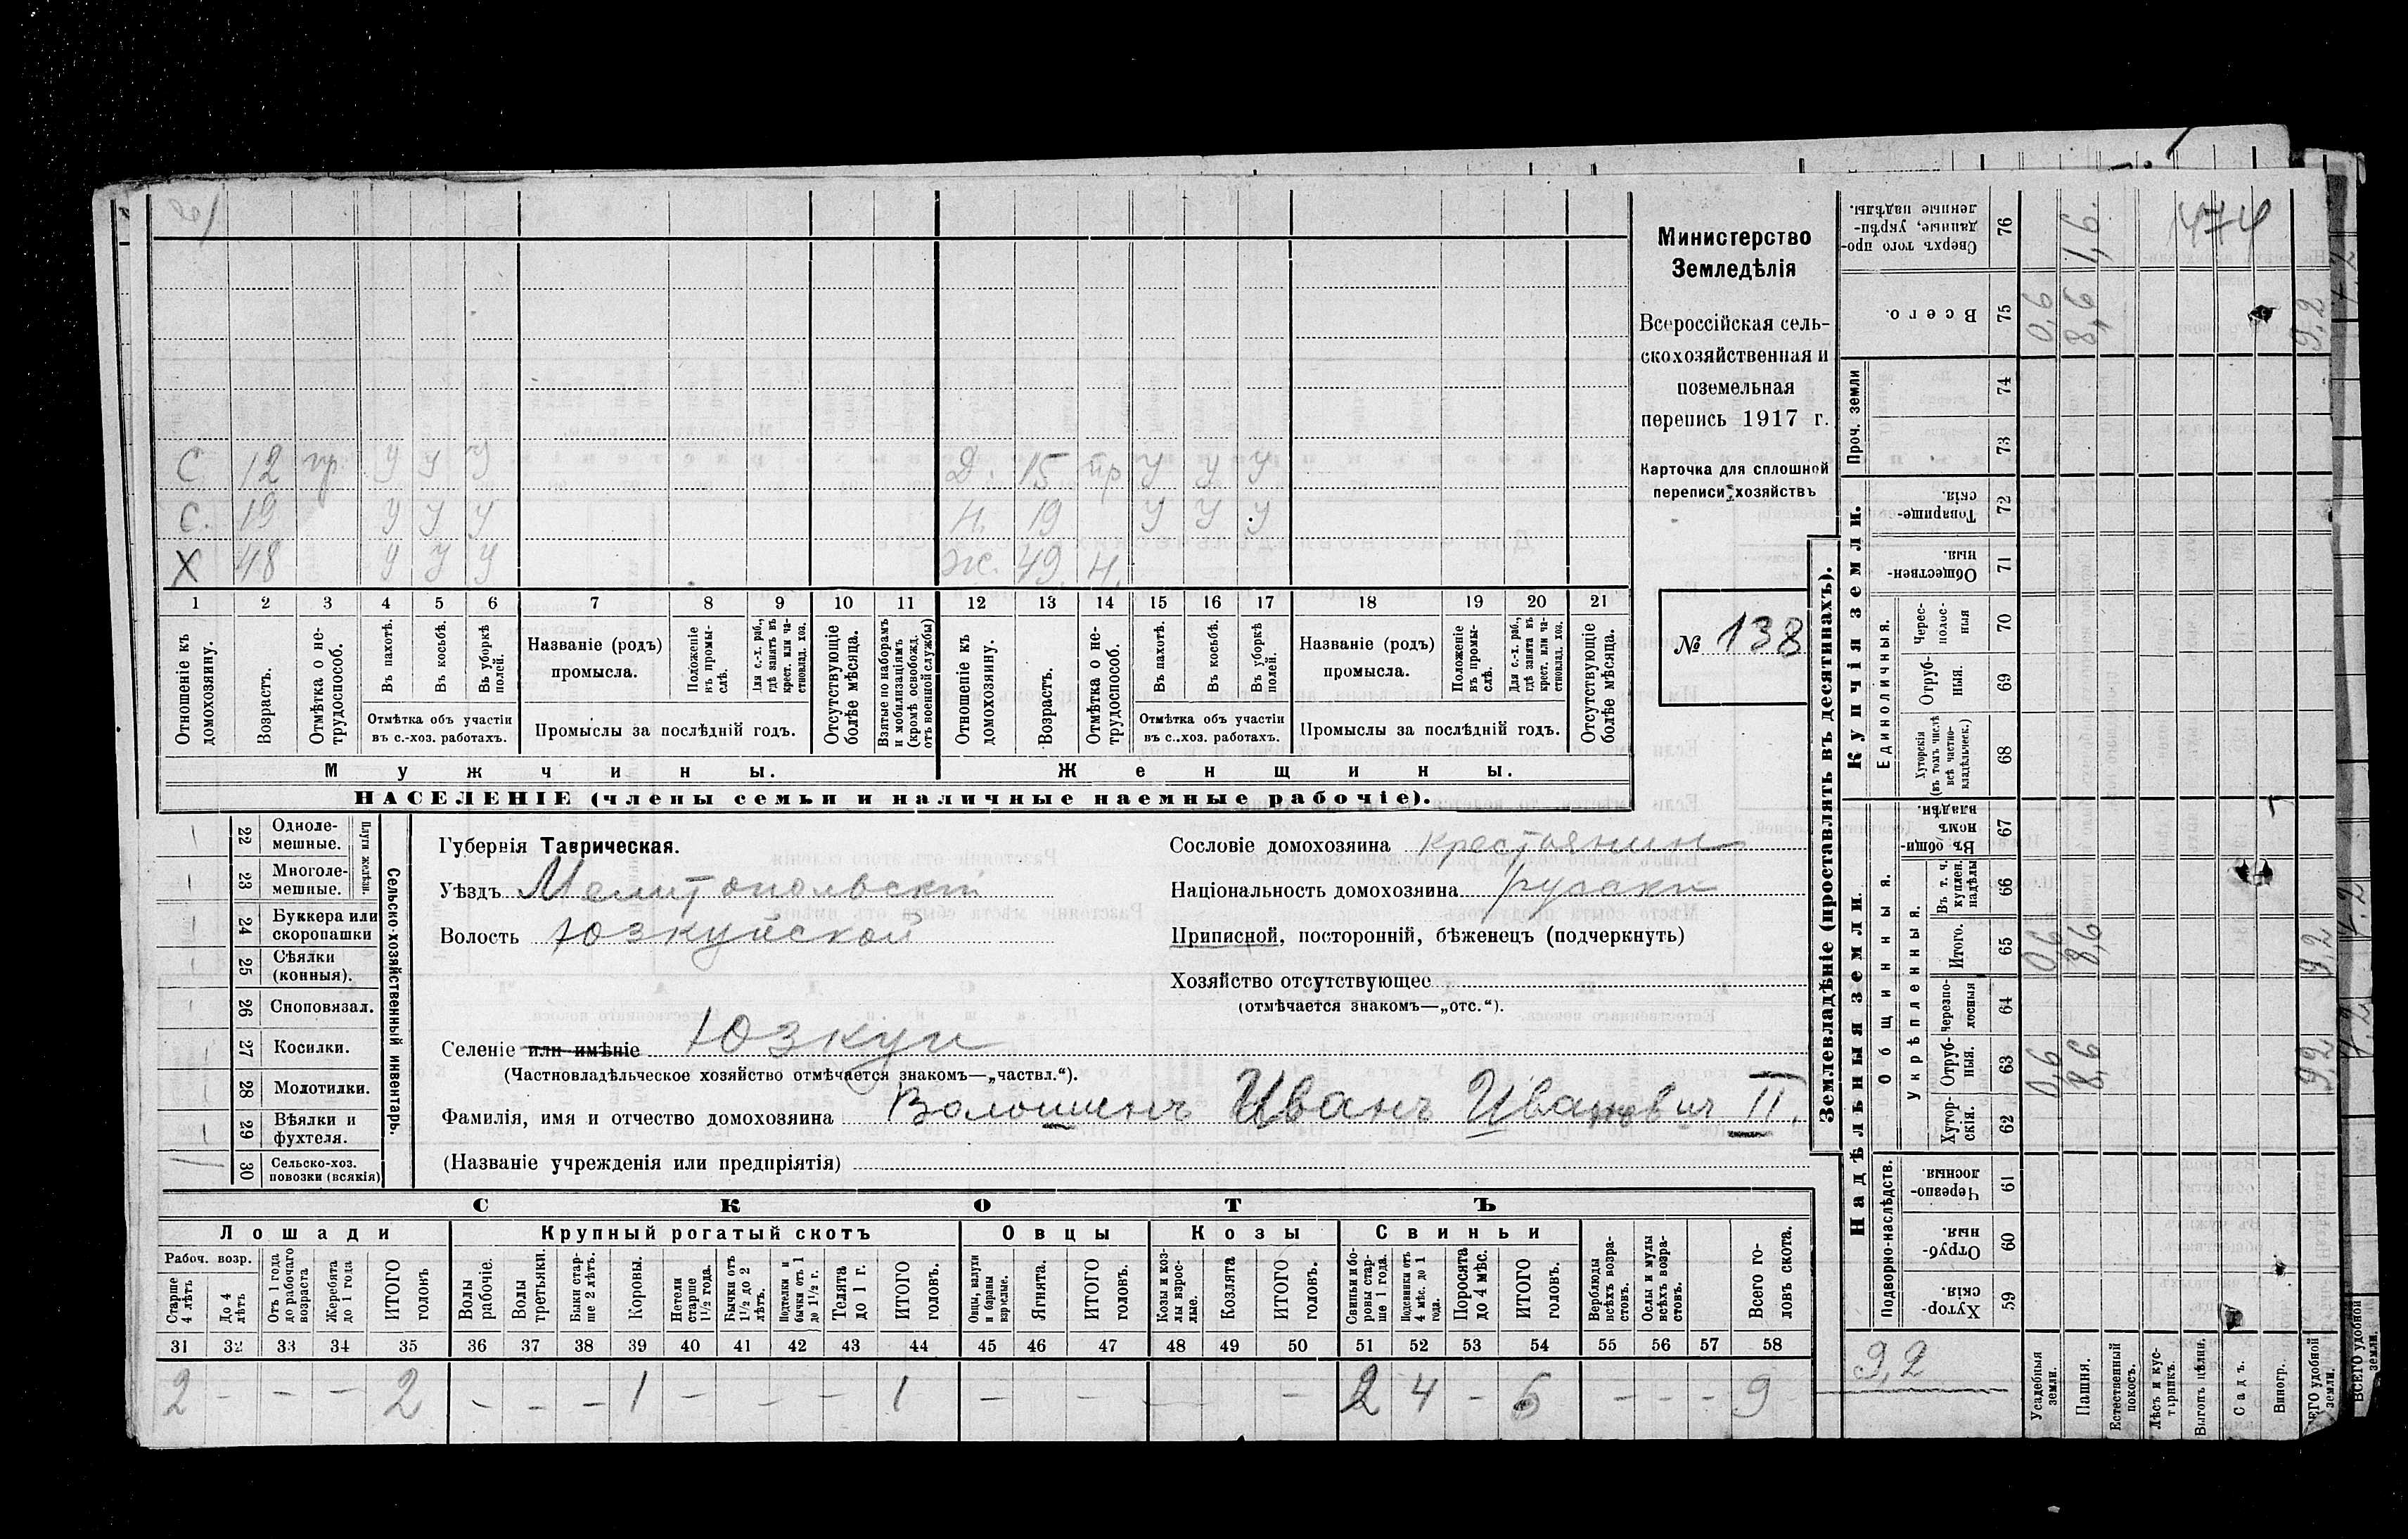 Министерство
Земледѣлія
Всероссійская сель-
скохозяйственная и
поземельная
перепись 1917 г.
Карточка для сплошной
переписи хозяйствъ
№ 138
С 12 пр У У У Д. 15 пр У У У
С. 19 У У У Н. 19 У У У
Х 48 У У У Ж. 49. Н.
1 2 3 4 5 6 7 8 9 10 11 12 13 14 15 16 17 18 19 20 21
Отношеніе къ домохозяину.
Возрастъ.
Отмѣтка о не-
трудоспособ.
Въ пахотѣ.
Въ косьбѣ.
Въ уборкѣ
полей.
Отмѣтка объ участіи
въ с.-хоз. работахъ.
Названіе (родъ)
промысла.
Положеніе
въ промы-
слѣ.
Для с.-х. раб.,
гдѣ занятъ въ
крест. или ча-
стновлад. хоз.
Промыслы за послѣдній годъ.
Отсутствующіе
болѣе мѣсяца.
Взятые по наборамъ
и мобилизаціямъ
(кромѣ освобожд.
отъ военной службы)
Отношеніе къ
домохозяину.
Возрастъ.
Отмѣтка о не-
трудоспособ.
Въ пахотѣ.
Въ косьбѣ.
Въ уборкѣ
полей.
Отмѣтка объ участіи
въ с.-хоз. работахъ.
Названіе (родъ)
промысла.
Положеніе
въ промы-
слѣ.
Для с.-х. раб.,
гдѣ занята въ
крест. или ча-
стновлад. хоз.
Промыслы за послѣдній годъ.
Отсутствующіе
болѣе мѣсяца.
Мужчины. Женщины.
НАСЕЛЕНІЕ (члены семьи и наличные наемные рабочіе).
Сельско-хозяйственный инвентарь.
Плуги желѣзн.
22 Одноле-
мешные.
23 Многоле-
мешные.
24 Буккера или
скоропашки
25 Сѣялки
(конныя).
26 Сноповязал.
27 Косилки.
28 Молотилки.
29 Вѣялки и
фухтеля.
30 Сельско-хоз.
повозки (всякія)
Губернія Таврическая.
Уѣздъ Мелитопольскій
Волость Юзкуйской
Селеніе или имѣніе Юзкуи
(Частновладѣльческое хозяйство отмѣчается знакомъ—„частвл.“).
Фамилія, имя и отчество домохозяина Волошинъ Иванъ Ивановичъ II.
(Названіе учрежденія или предпріятія)
Сословіе домохозяина крестьянин
Національность домохозяина русски
Приписной, посторонній, бѣженецъ (подчеркнуть)
Хозяйство отсутствующее
(отмѣчается знакомъ—„отс.“).
СКОТЪ
Лошади Крупный рогатый скотъ Овцы Козы Свиньи
Рабоч. возр.
Старше
4 лѣтъ
До 4
лѣтъ
Отъ 1 года
до рабочаго
возраста
Жеребята
до 1 года
ИТОГО
головъ
Волы
рабочіе.
Волы
третьяки.
Быки стар-
ше 2 лѣтъ.
Коровы.
Нетели
старше
1½ года.
Бычки отъ
1½ до 2
лѣтъ.
Подтелки и
бычки отъ 1
до 1½ г.
Телята
до 1 г.
ИТОГО
головъ.
Овцы, валухи
и бараны
взрослые.
Ягнята.
ИТОГО
головъ.
Козы и коз-
лы взрос-
лые.
Козлята
ИТОГО
головъ.
Свиньи и бо-
ровы стар-
ше 1 года.
Подсвинки отъ
4 мѣс. до 1
года.
Поросята
до 4 мѣс.
ИТОГО
головъ.
Верблюды
всѣхъ возра-
стовъ.
Ослы и мулы
всѣхъ возра-
стовъ.
Всего го-
ловъ скота.
31 32 33 34 35 36 37 38 39 40 41 42 43 44 45 46 47 48 49 50 51 52 53 54 55 56 57 58
2 – – – 2 – – – 1 – – – 1 – – – – 2 4 – 6 – – – 9
Землевладѣніе (проставлять въ десятинахъ).
Купчія земли.
Надѣльныя земли.
Проч. земли
Единоличныя.
Общинныя.
Укрѣпленныя.
Подворно-наслѣдств.
76 Сверхъ того про-
данные, укрѣп-
ленные надѣлы.
75 Всего.
74
73
72 Товарище-
скія.
71 Обществен-
ныя.
70 Черес-
полос-
ныя
69 Отруб-
ныя.
68 Хуторскія
(въ томъ числѣ
всѣ частно-
владѣльческ.)
67 Въ общи-
номъ
владѣн.
66 Въ т. ч.
куплен.
надѣлы
65 Итого.
64 Черезпо-
лосныя
63 Отруб-
ныя.
62 Хутор-
скія.
61 Черезпо-
лосныя.
60 Отруб-
ныя.
59 Хутор-
скія.
1,6.
0,6 8,6 9,2
0,6 8,6 9,2
0,6 8,6 9,2
9,2
Усадебныя
земли.
Пашня.
Естественный
покосъ.
Лѣсъ и кус-
тарникъ.
Выгонъ цѣлин.
Садъ.
Виногр.
ВСЕГО удобной
земли.